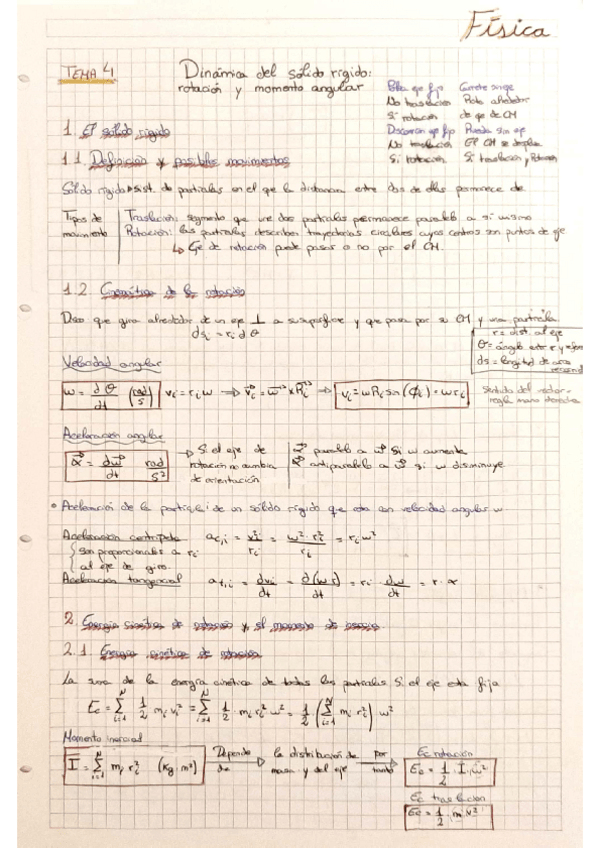 Física
TEMA 4
Dinámica del sólido rígido:
rotación y momento angular
No traslación
Sí rotación
No traslación
Sí rotación
Rota alrededor
de eje de CM
Rueda sin eje
El CM se desplaza
Sí traslación y Rotación
1. El sólido rígido
1.1. Definición y posibles movimientos
Sólido rígido sist. de partículas en el que la distancia entre dos de ellas permanece cte
Tipos de movimiento
Traslación: segmento que une dos partículas permanece paralelo a sí mismo
Rotación: las partículas describen trayectorias circulares cuyos centros son puntos de eje
↳ Eje de rotación puede pasar o no por el CM.
1.2. Cinemática de la rotación
Disco que gira alrededor de un eje ⊥ a su superficie y que pasa por su CM y una partícula
ds_i = r_i dθ
r = dist. al eje
θ = ángulo entre r y
ds = longitud de arco
Velocidad angular
ω = dθ/dt (rad/s) v_i = r_i ω → v_i = ω × R_i → v_i = ω R_i sin(ϕ_i) = ω r_i
sentido del vector → regla mano derecha
Aceleración angular
α = dω/dt rad/s²
→ Si el eje de rotación no cambia de orientación
α paralelo a ω si ω aumenta
α antiparalelo a ω si ω disminuye
• Aceleración de la partícula i de un sólido rígido que esta con velocidad angular ω
Aceleración centrípeta a_c,i = v_i²/r_i = ω² · r_i²/r_i = r_i ω²
son proporcionales a r_i
al eje de giro.
Aceleración tangencial a_t,i = dv_i/dt = d(ω r)/dt = r_i · dω/dt = r · α
2. Energía cinética de rotación y el momento de inercia
2.1. Energía cinética de rotación
La suma de la energía cinética de todas las partículas Si el eje esta fija
E_c = Σ_{i=1}^{N} 1/2 m_i v_i² = Σ_{i=1}^{N} 1/2 · m_i r_i² ω² = 1/2 (Σ_{i=1}^{N} m_i r_i²) ω²
Momento inercial
I = Σ_{i=1}^{N} m_i r_i² (Kg·m²)
Depende de → la distribución de masa y del eje → por tanto
Ec rotación
E_c = 1/2 · I · ω²
Ec traslación
Ec = 1/2 · m v²